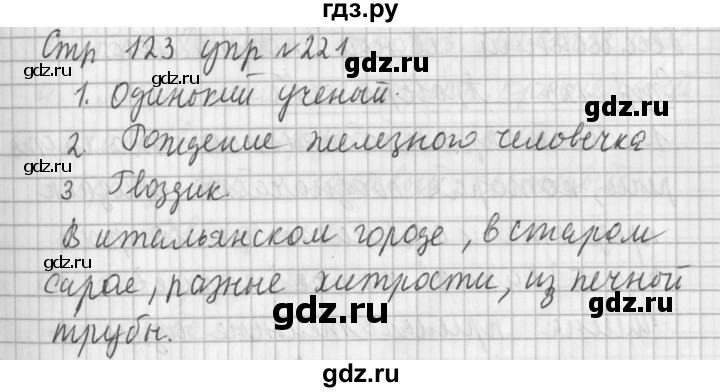 гдз.ру
Стр 123 упр №221
gdz.ru gdz.ru gdz.ru
1. Одинокий ученый.
gdz.ru gdz.ru
2. Рождение железного человечка
3 Гвоздик.
gdz.ru gdz.ru
В итальянском городе, в старом
gdz.ru gdz.ru
сарае, разные хитрости, из печной
gdz.ru gdz.ru
трубы.
gdz.ru